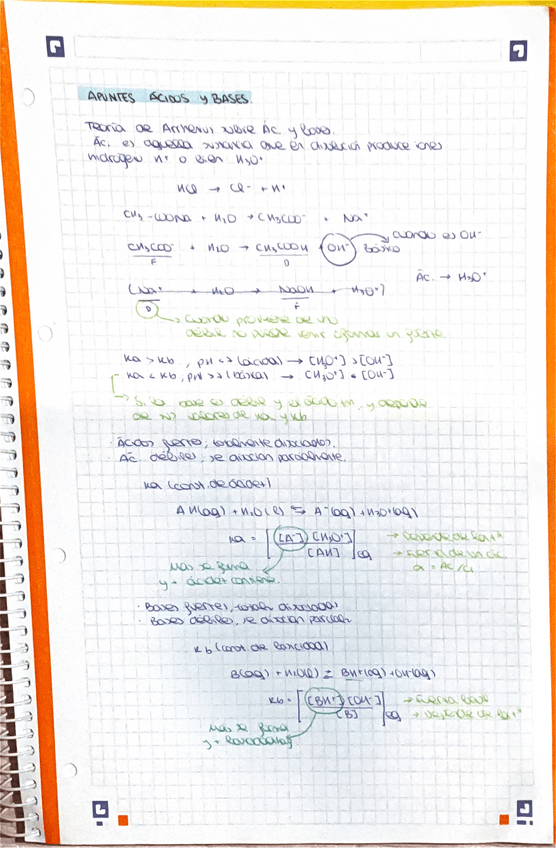 APUNTES ÁCIDOS y BASES.
Teoría de Arrhenius sobre Ác. y bases.
Ác. es aquella sustancia que en disolución produce iones
hidrógeno H⁺ o bien H₃O⁺
HCl → Cl⁻ + H⁺
CH₃-COONa + H₂O → CH₃COO⁻ + Na⁺
CH₃COO⁻ + H₂O → CH₃COOH + OH⁻ cuando es OH⁻ básico
F D
Ác. → H₃O⁺
(Na⁺ + H₂O → NaOH + H₃O⁺)
D F
→ Cuando proviene de un
débil no puede venir un fuerte
Ka > Kb, pH <7 (ácida) → [H₃O⁺] > [OH⁻]
Ka < Kb, pH >7 (básica) → [H₃O⁺] < [OH⁻]
→ Si la base es débil y el ácido tm, y depende
de los valores de Ka y Kb
· Ácidos fuertes, totalmente disociados.
· Ác. débiles, se disocian parcialmente.
Ka (const. de acidez)
AH(aq) + H₂O(l) ⇆ A⁻(aq) + H₃O⁺(aq)
Ka = [[A⁻] [H₃O⁺] / [AH]]eq
→ Depende de la tª
→ Fuerza de un ác.
Más se forma
y + ácidez contiene.
· Bases fuertes, total disociadas
· Bases débiles, se disocian parcial
Kb (const. de basicidad)
B(aq) + H₂O(l) ⇆ BH⁺(aq) + OH⁻(aq)
Kb = [[BH⁺] [OH⁻] / [B]]eq
→ Fuerza base
→ Depende de la tª
Más se forma